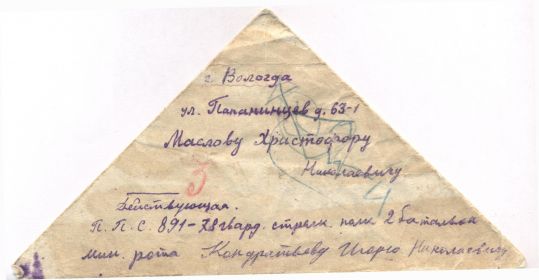 г. Вологда
ул. Папанинцев д. 63-1
Маслову Христофору
Николаевичу
5
4
Действующая.
П.П.С. 891-78 гвард. стрелк. полк 2 батальон
мин. рота Кондратьеву Игорю Николаевичу